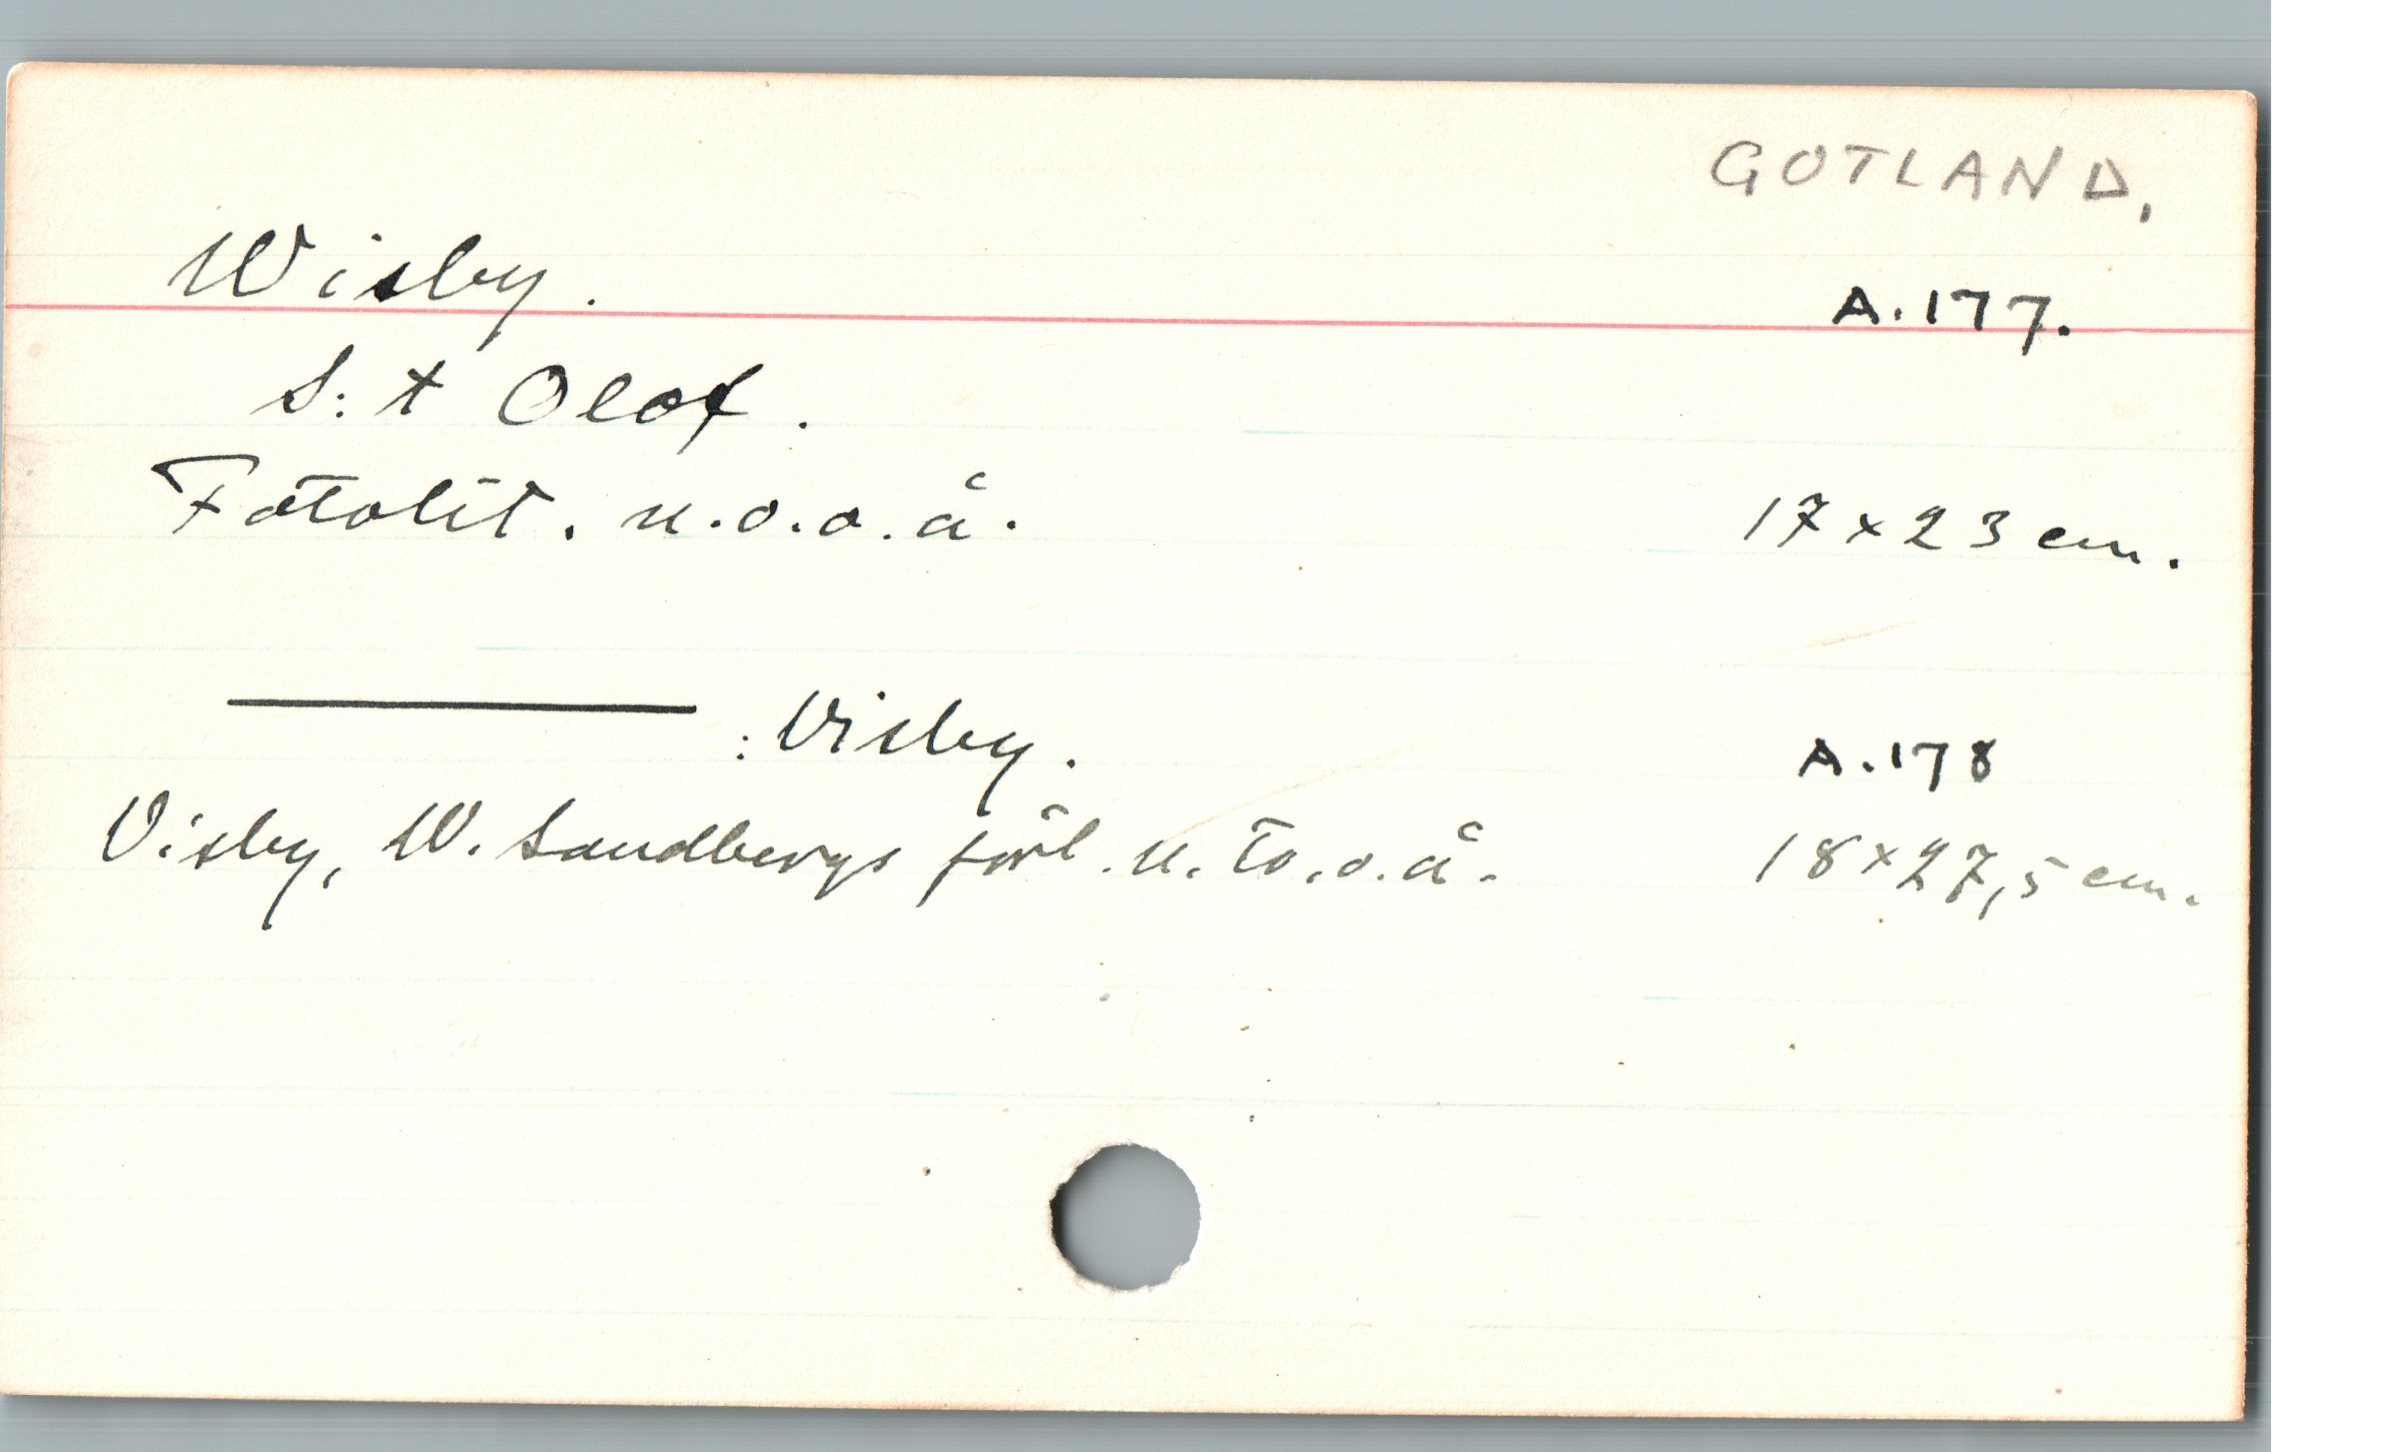 GOTLAND.
Wisby. A.177.
S:t Olof.
Fotolit. u.o.o.å. 17x23 cm.
———— : Visby. A.178
Visby, W. Sandbergs förl. u. to.o.å. 18x27,5 cm.